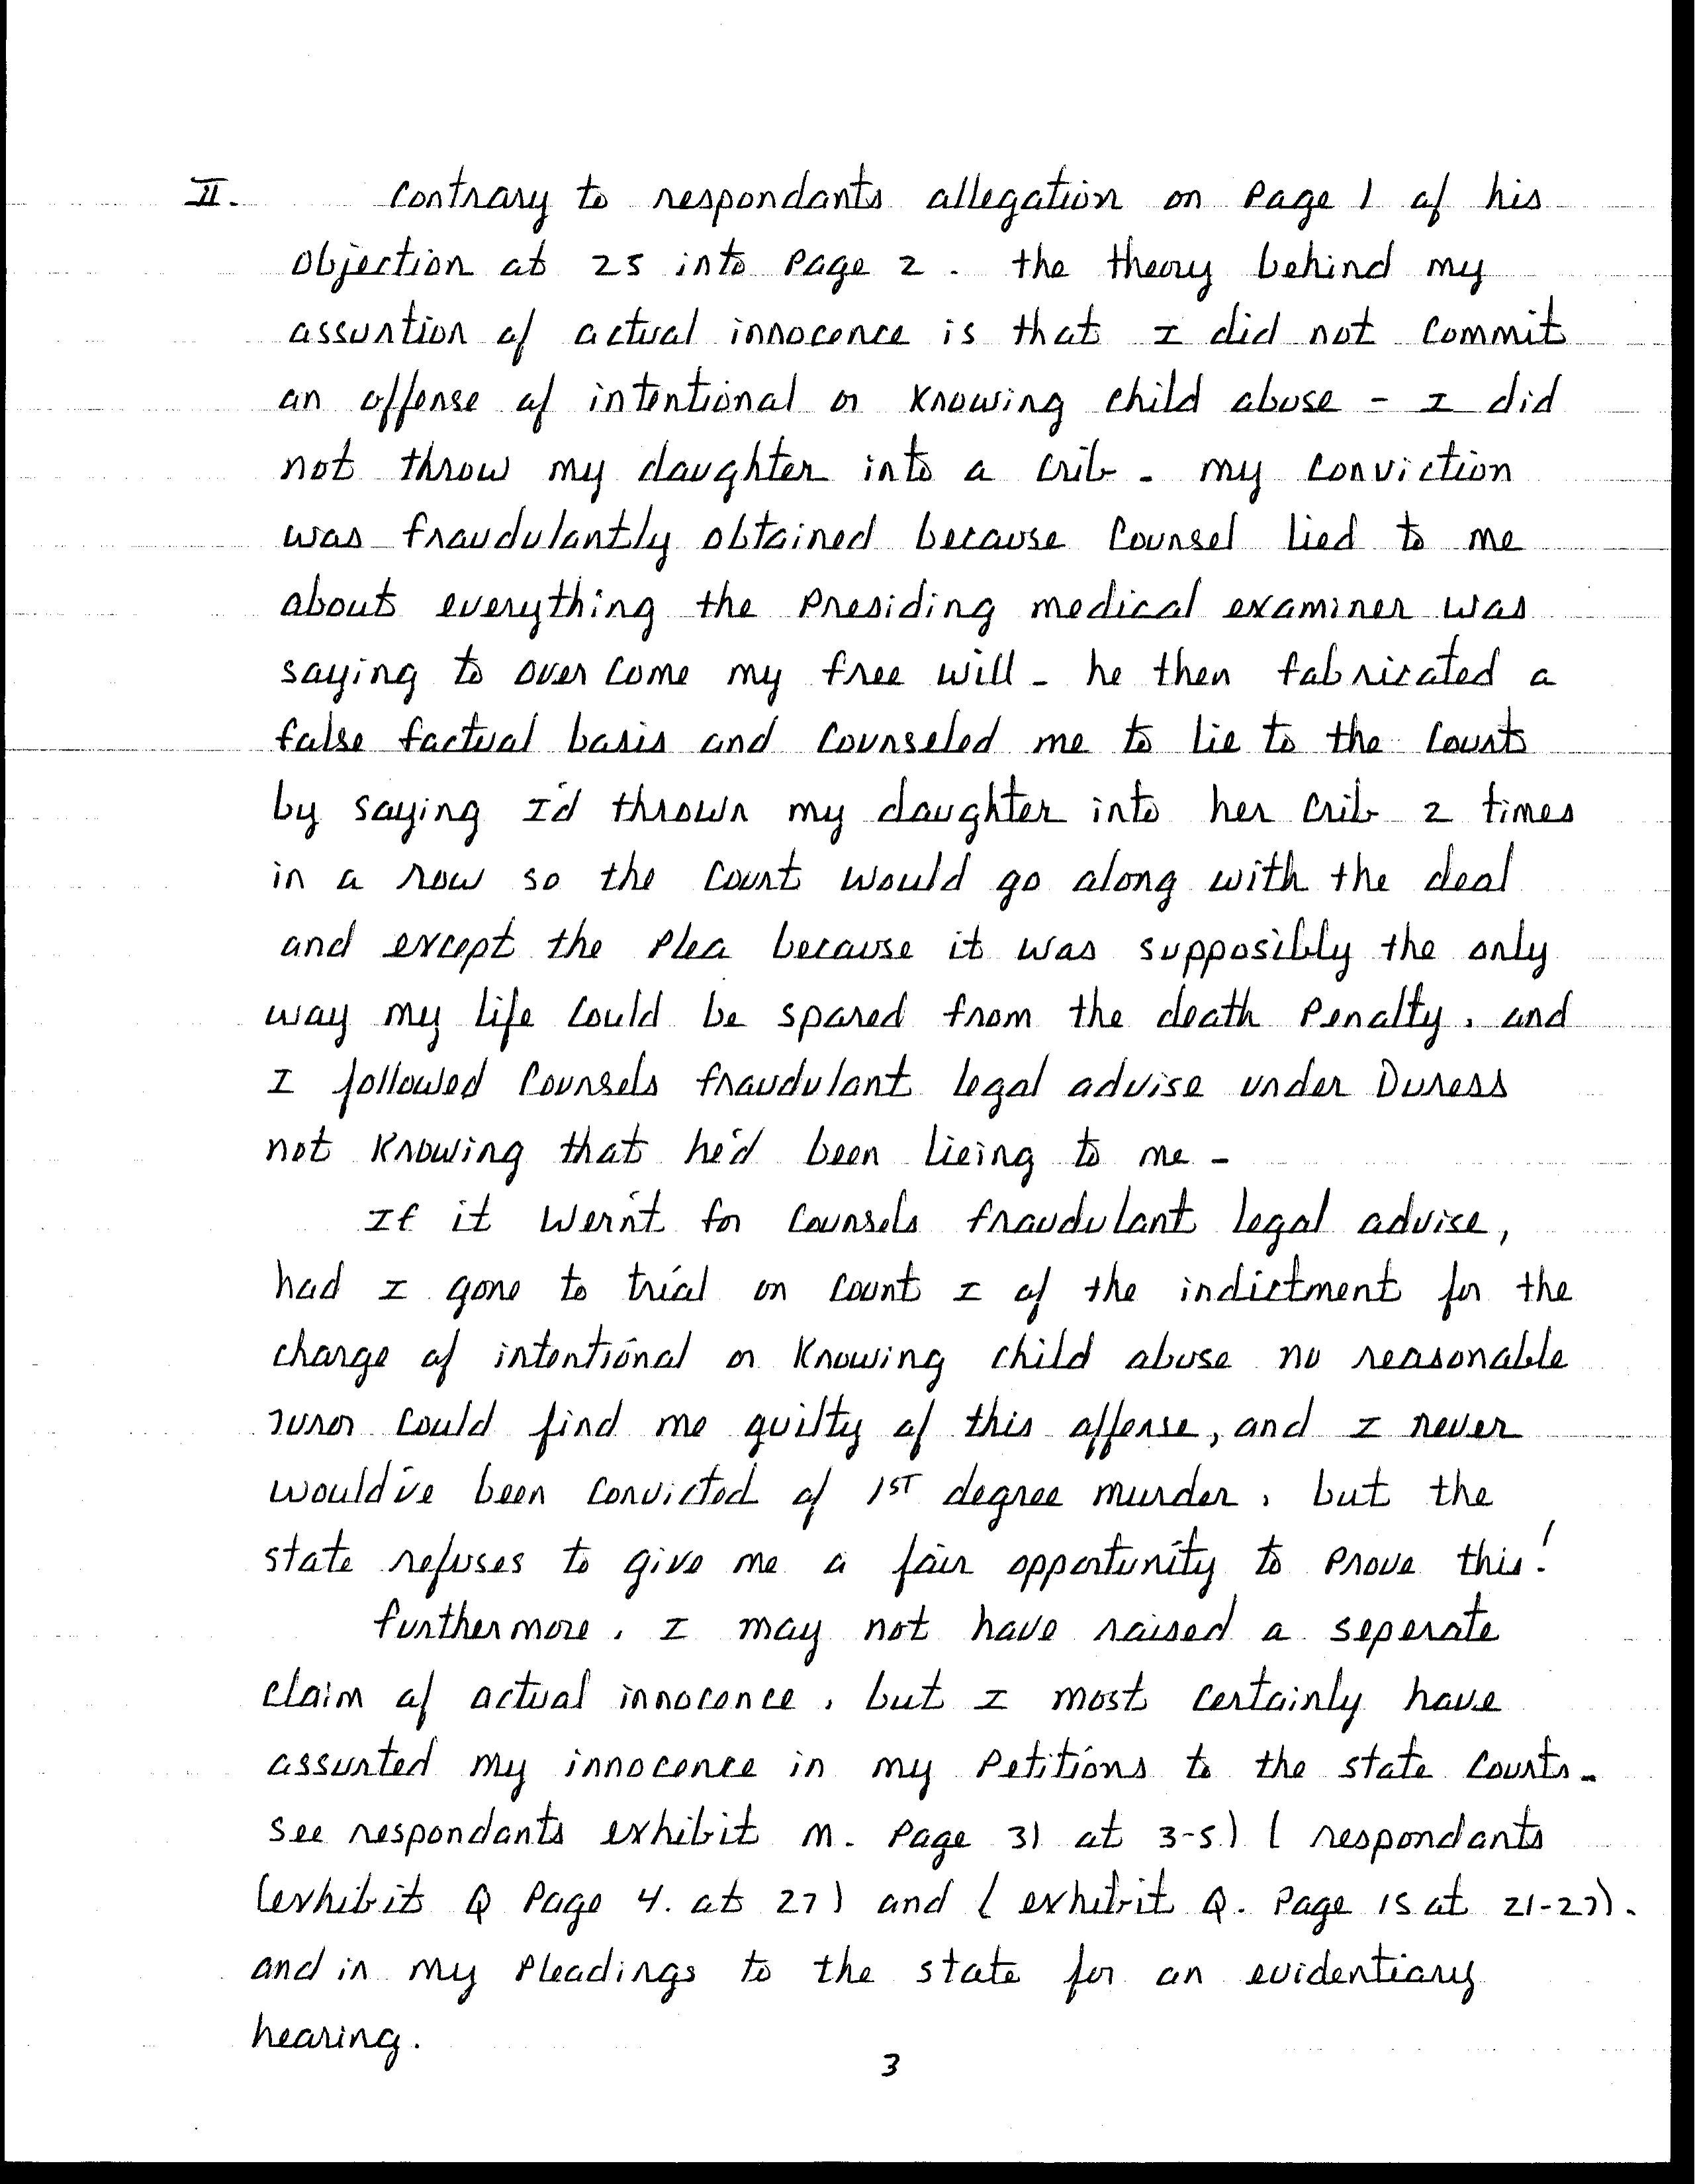 II. Contrary to respondants allegation on Page 1 of his
objection at 25 into Page 2. the theory behind my
assurtion of actual innocence is that I did not commit
an offense of intentional or Knowing child abuse - I did
not throw my daughter into a crib. my conviction
was fraudulantly obtained because Counsel lied to me
about everything the Presiding medical examiner was
saying to over come my free will - he then fabricated a
false factual basis and Counseled me to lie to the Court
by saying I'd thrown my daughter into her crib 2 times
in a row so the Court would go along with the deal
and except the Plea because it was supposibly the only
way my life could be spared from the death Penalty, and
I followed Counsels fraudulant legal advise under Duress
not Knowing that he'd been lieing to me -
If it wern't for Counsels fraudulant legal advise,
had I gone to trial on Count I of the indictment for the
charge of intentional or Knowing child abuse no reasonable
juror could find me guilty of this offense, and I never
would've been convicted of 1ST degree murder, but the
state refuses to give me a fair opportunity to Prove this!
furthermore, I may not have raised a seperate
claim of actual innocence, but I most certainly have
assurted my innocence in my Petitions to the state Courts.
see respondants exhibit M. Page 31 at 3-5) ( respondants
(exhibit Q Page 4. at 27) and ( exhibit Q. Page 15 at 21-27).
and in my Pleadings to the state for an evidentiary
hearing.
3